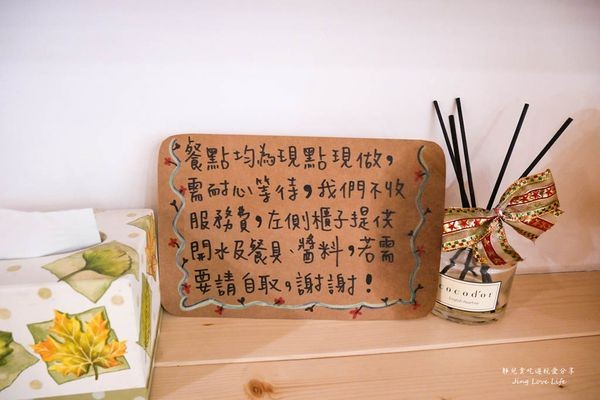 餐點均為現點現做，
需耐心等待，我們不收
服務費，左側櫃子提供
開水及餐具、醬料，若需
要請自取，謝謝！
cocodor
靜兒貪吃遊玩愛分享
Jing Love Life